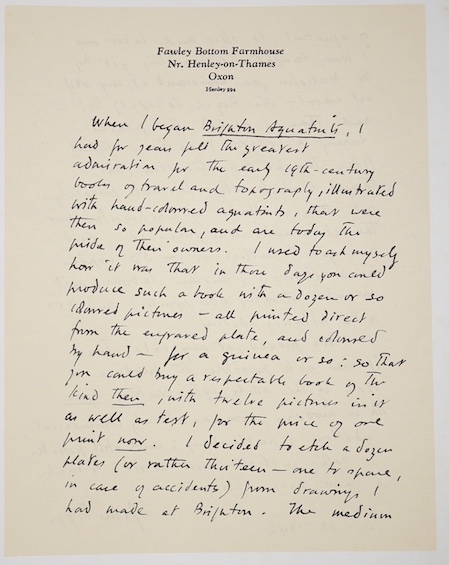 Fawley Bottom Farmhouse
Nr. Henley-on-Thames
Oxon
Henley 294
When I began Brighton Aquatints, I
had for years felt the greatest
admiration for the early 19th-century
books of travel and topography, illustrated
with hand-coloured aquatints, that were
then so popular, and are today the
pride of their owners. I used to ask myself
how it was that in those days you could
produce such a book with a dozen or so
coloured pictures – all printed direct
from the engraved plate, and coloured
by hand – for a guinea or so: so that
you could buy a respectable book of the
kind then, with twelve pictures in it
as well as text, for the price of one
print now. I decided to etch a dozen
plates (or rather thirteen – one to spare,
in case of accidents) from drawings I
had made at Brighton. The medium